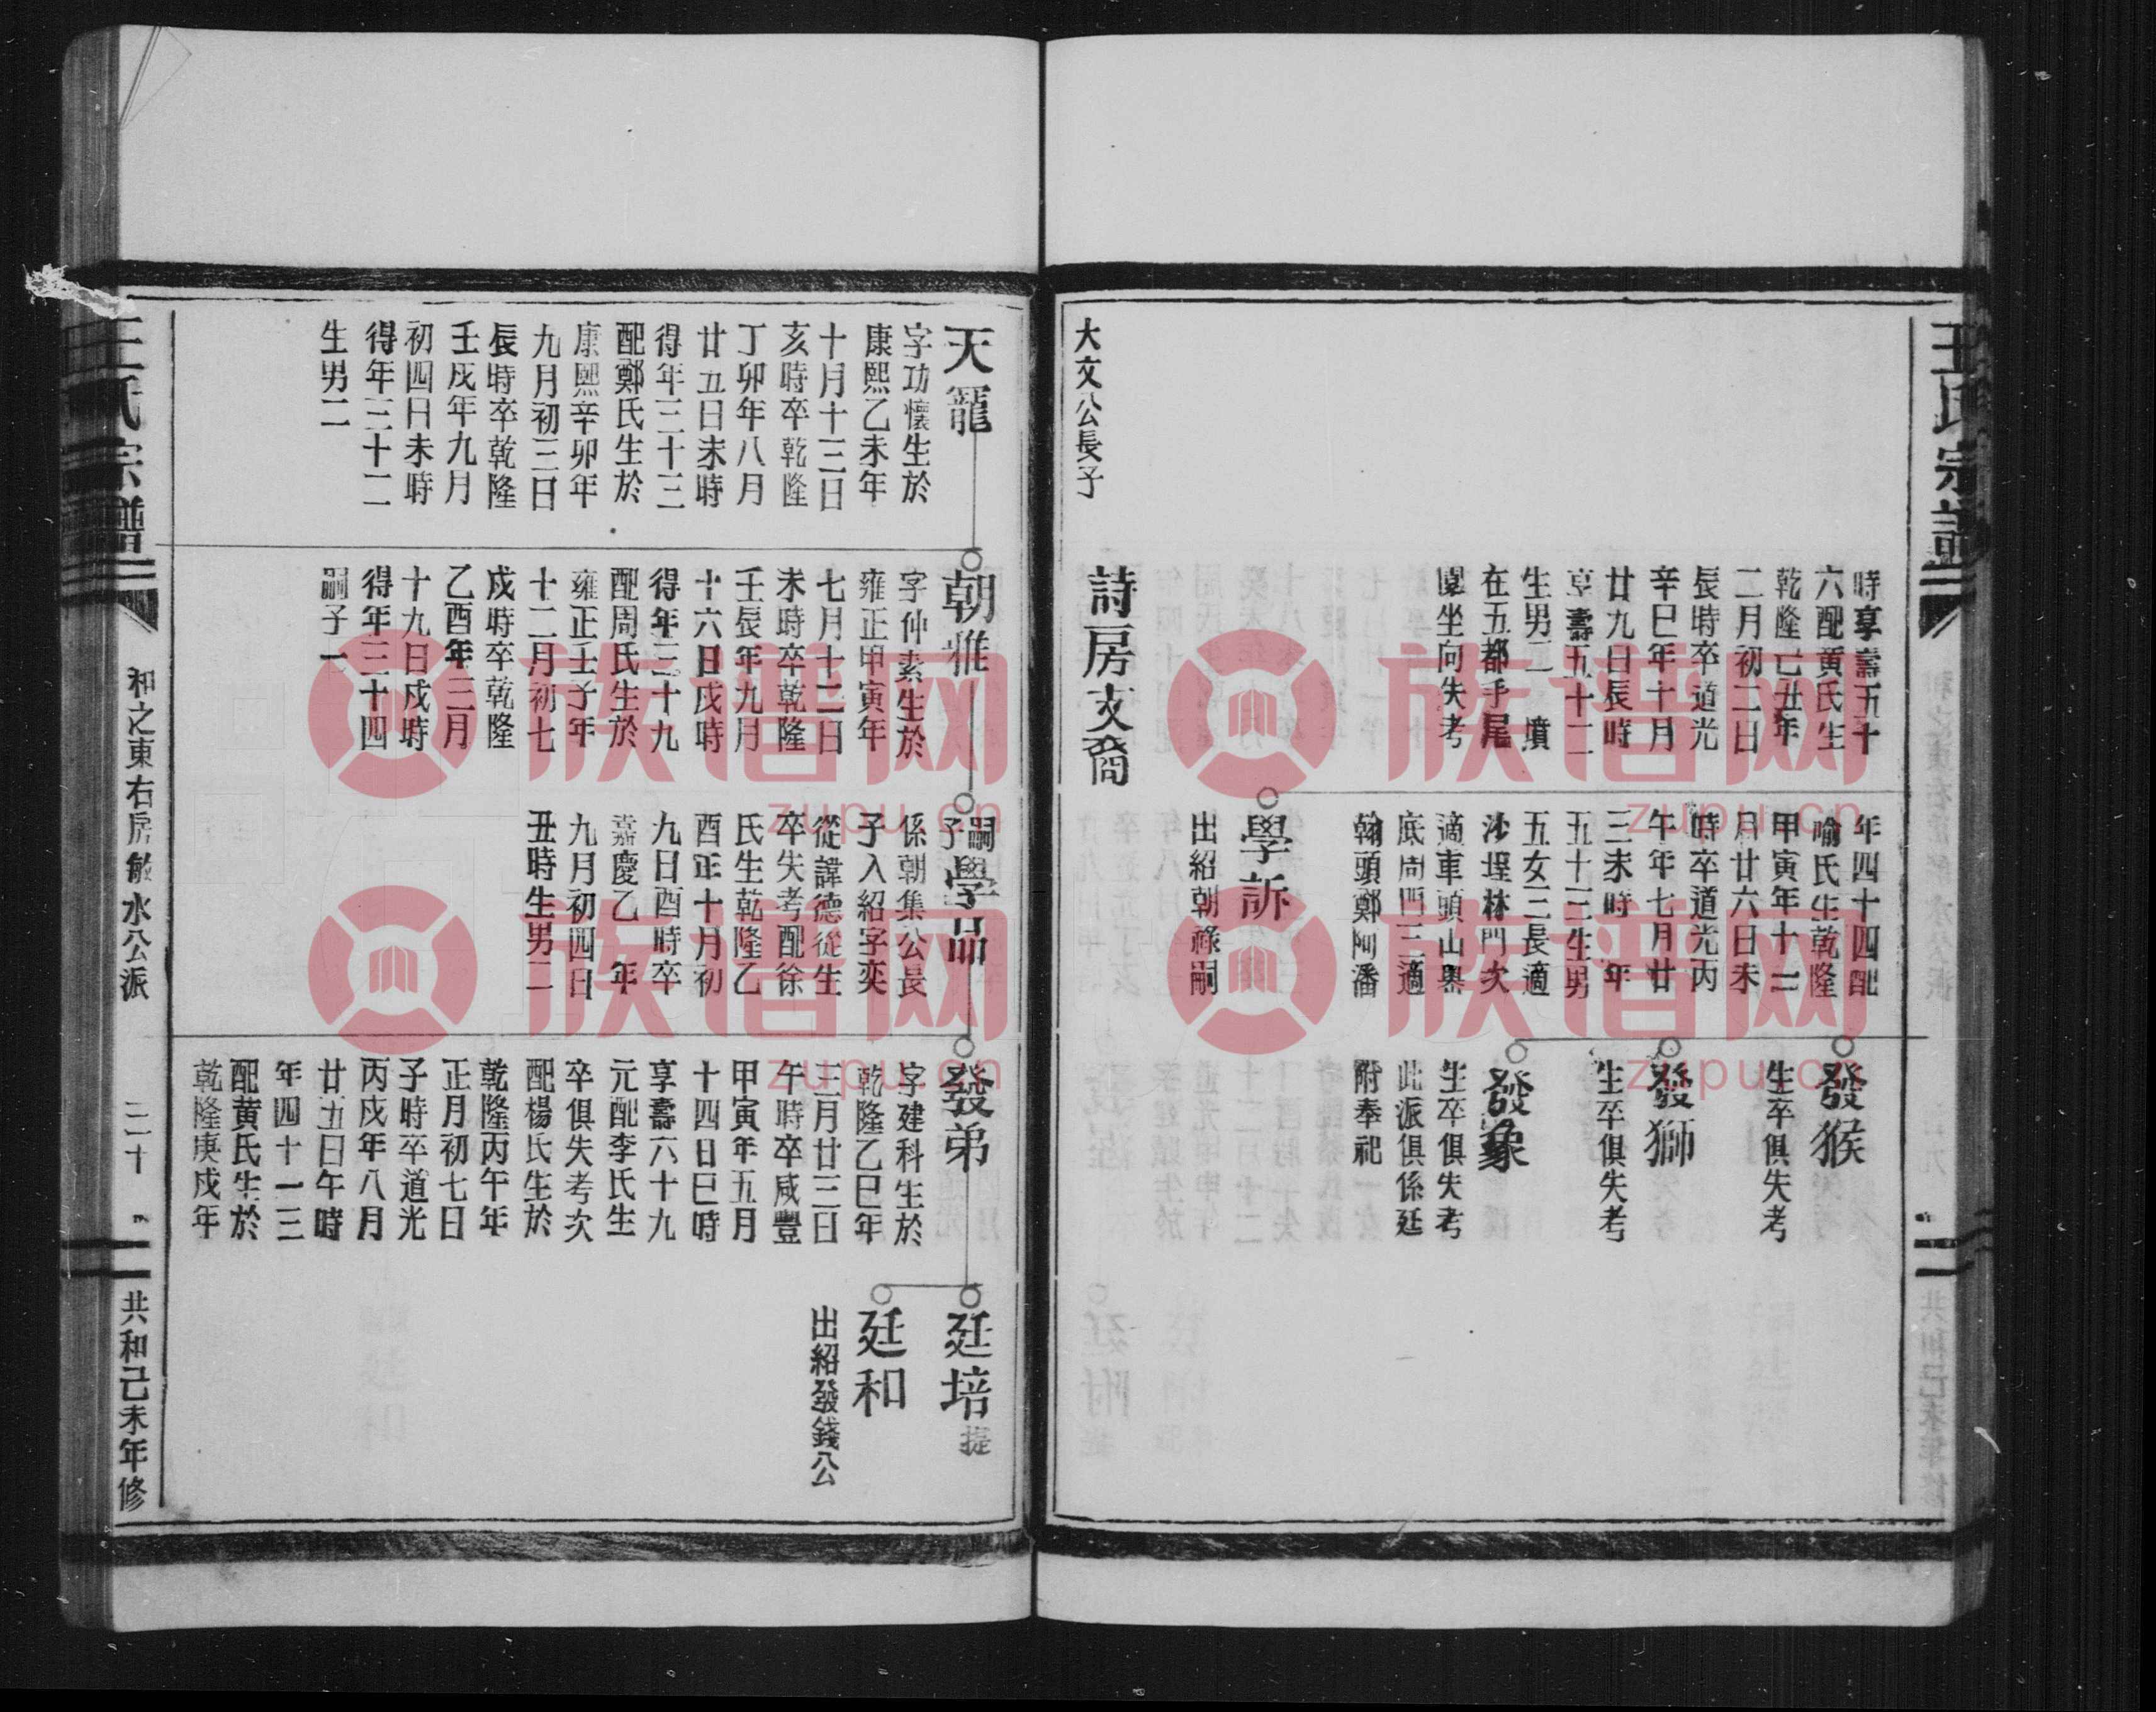 王氏宗譜
時享壽五十
六配黃氏生
乾隆己丑年
二月初二日
辰時卒道光
辛巳年十月
廿九日辰時
享壽五十二
生男二 墳
在五都手尾
園坐向失考
年四十四配
喻氏生乾隆
甲寅年十二
月廿六日未
時卒道光丙
午年七月廿
三未時 年
五十三生男
五女三長適
沙埕林門次
適車頭山舉
底周門三適
翰頭鄭阿潘
學訴
出紹朝祿嗣
發猴
生卒俱失考
發獅
生卒俱失考
發象
生卒俱失考
此派俱係廷
附奉祀
詩房文裔
大文公長子
天寵
字功懷生於
康熙乙未年
十月十三日
亥時卒乾隆
丁卯年八月
廿五日未時
得年三十三
配鄭氏生於
康熙辛卯年
九月初三日
辰時卒乾隆
壬戌年九月
初四日未時
得年三十二
生男二
朝雅
字仲素生於
雍正甲寅年
七月十二日
未時卒乾隆
壬辰年九月
十六日戌時
得年三十九
配周氏生於
雍正壬子年
十二月初七
戌時卒乾隆
乙酉年三月
十九日戌時
得年三十四
嗣子一
嗣子學品
係朝集公長
子入紹字奕
從諱德從生
卒失考配徐
氏生乾隆乙
酉正十月初
九日酉時卒
嘉慶乙 年
九月初四日
丑時生男二
發弟
字建科生於
乾隆乙巳年
三月廿三日
午時卒咸豐
甲寅年五月
十四日巳時
享壽六十九
元配李氏生
卒俱失考次
配楊氏生於
乾隆丙午年
正月初七日
子時卒道光
丙戌年八月
廿五日午時
年四十一三
配黃氏生於
乾隆庚戌年
廷培 提
廷和
出紹發錢公
王氏宗譜
和之東右房敏水公派
三十
共和己未年修
族谱网
zupu.cn
族谱网
zupu.cn
族谱网
zupu.cn
族谱网
zupu.cn